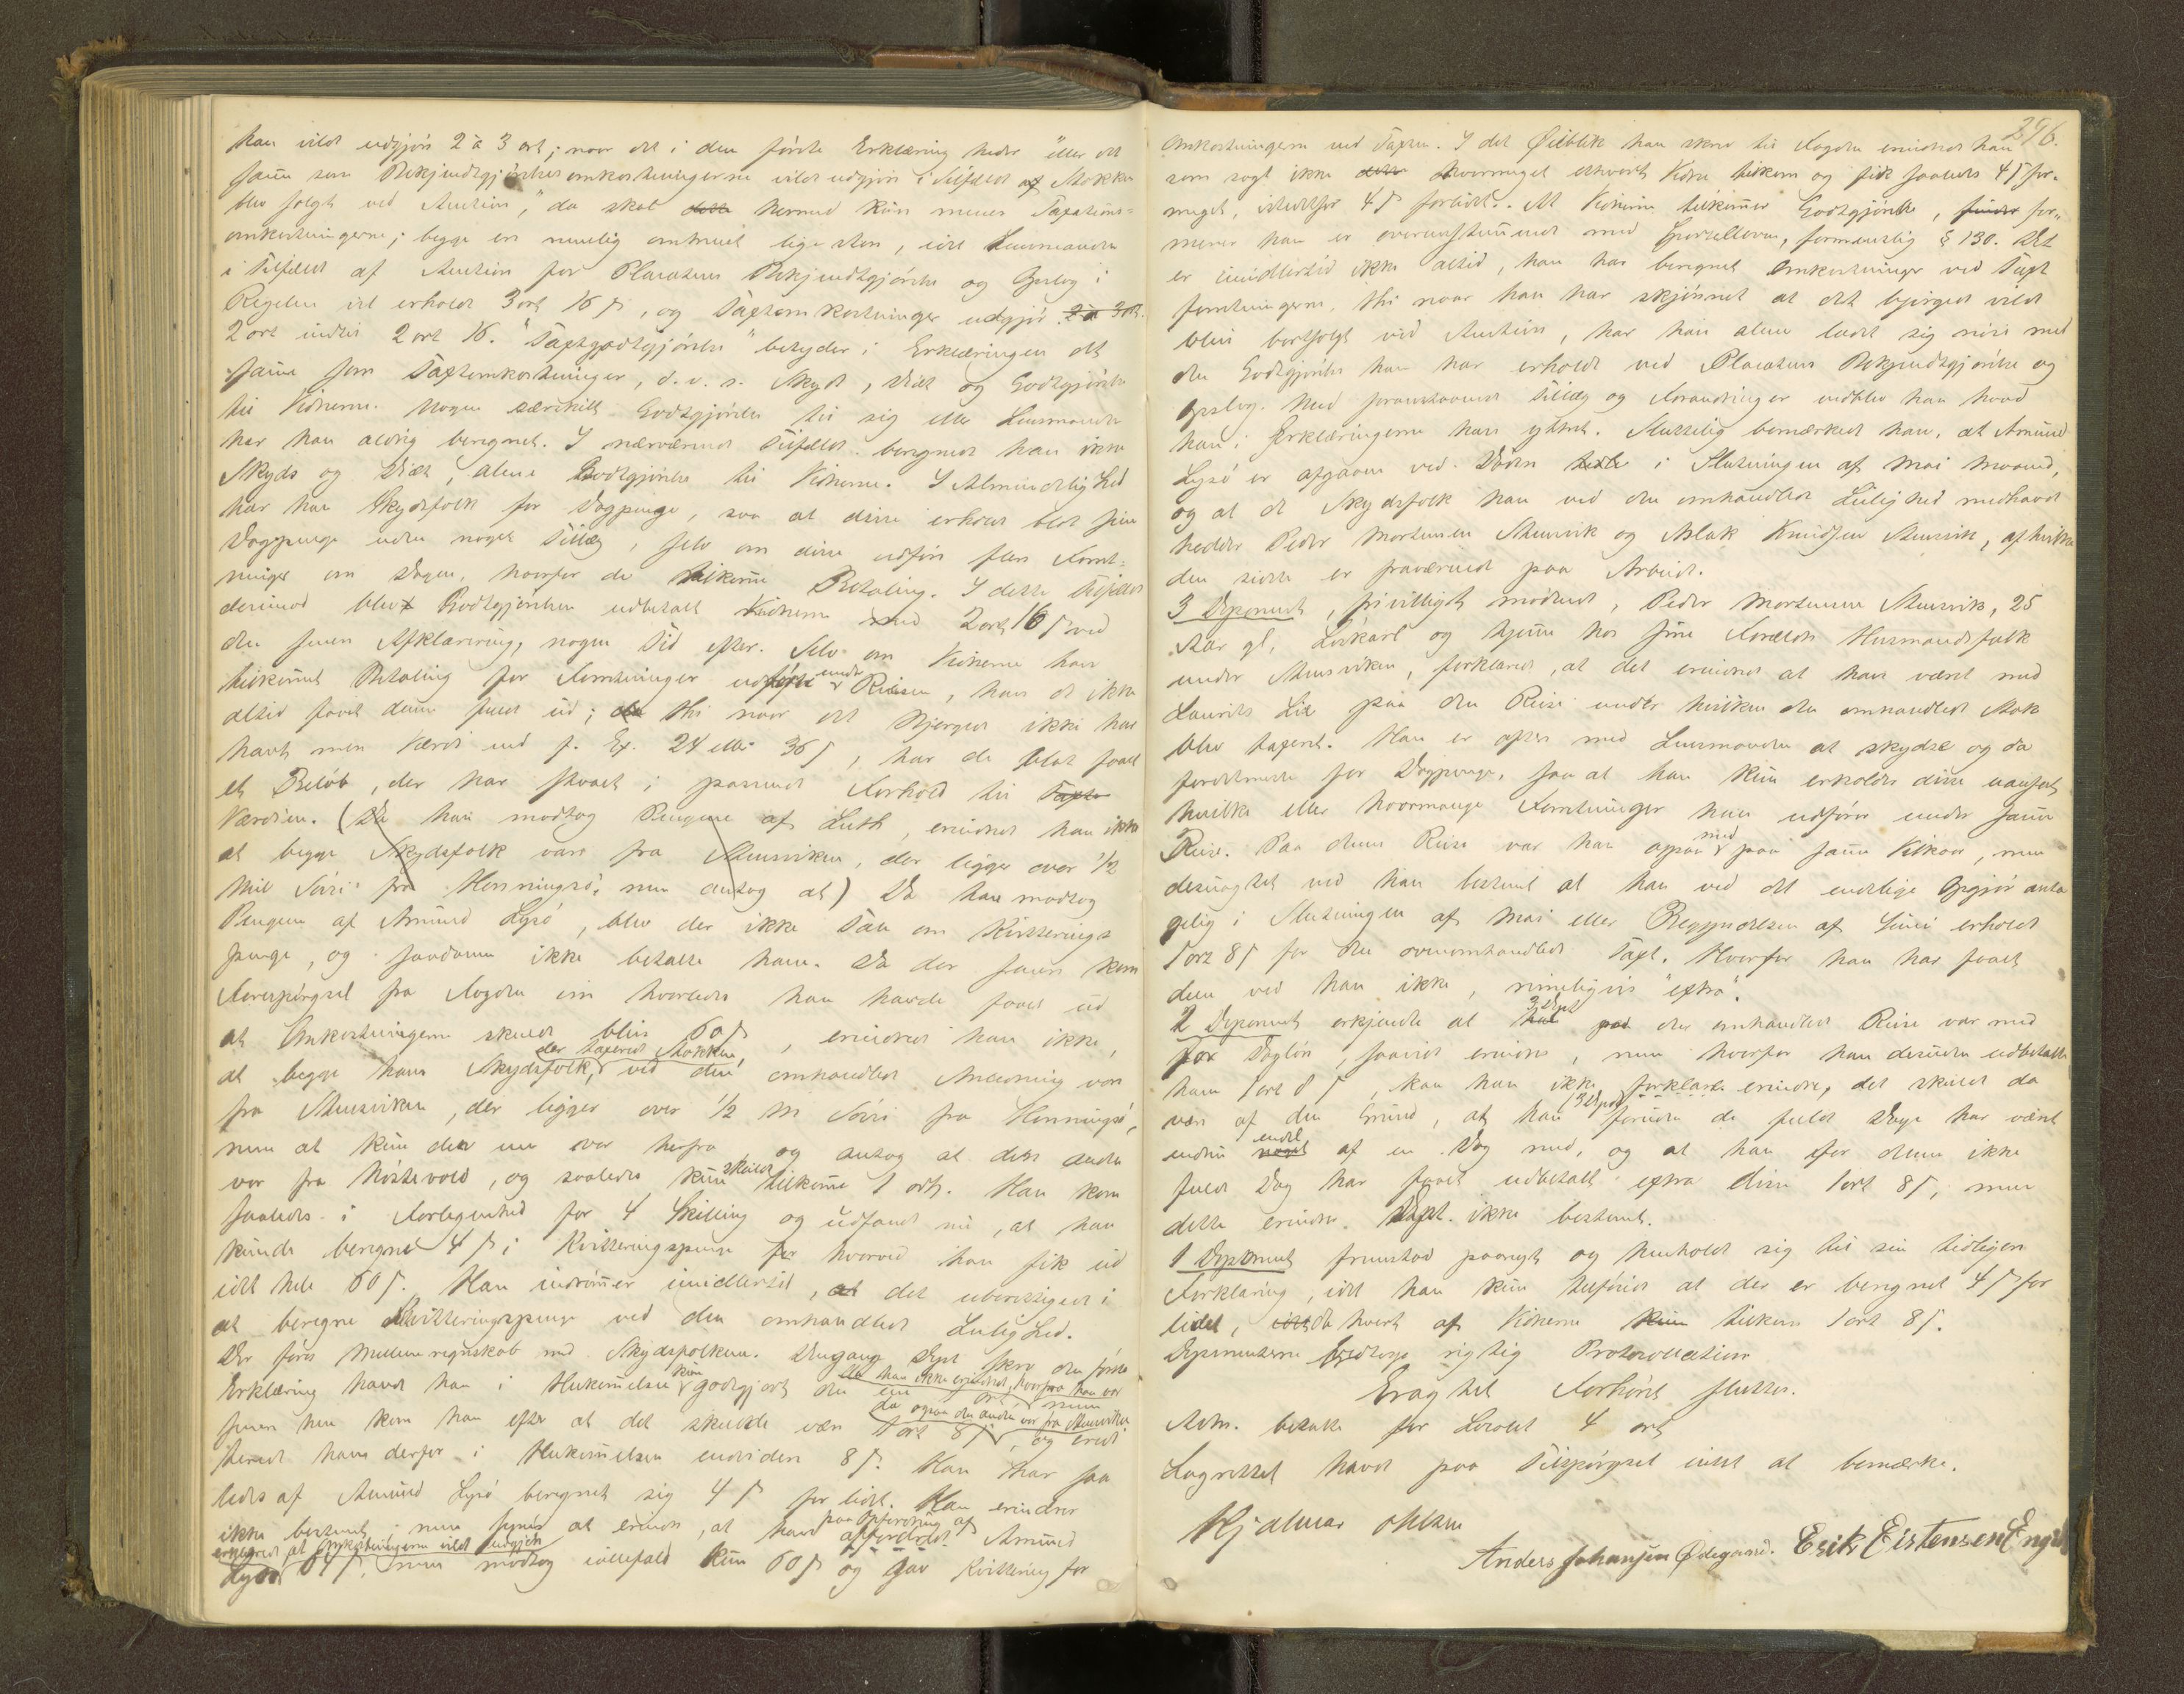 kan vilde udgjøre 2 à 3 ort; naar det i den første Erklæring heder "eller det
samme som Bekjendtgjørelsesomkostningerne vilde udgjøre i Tilfælde af Stokken
blev solgt ved Auction," da skal dette hermed kun menes Taxations-
omkostningerne; begge er nemlig omtrent lige store, idet Lensmanden
i Tilfælde af Auction for Placatens Bekjendtgjørelse og Opslag i
Regelen vil erholde 3 ort 16 ß, og Taxtomkostninger udgjør 2 à 3 ort.
2 ort indtil 2 ort 16. "Taxtgodtgjørelse" betyder i Erklæringen det
samme som Taxtomkostninger, d. v. s. Skyds, Diæt og Godtgjørelse
til Vidnerne. Nogen særskilt Godtgjørelse til sig eller Lensmanden
har han aldrig beregnet. I nærværende Tilfælde beregnede han ikke
Skyds og Diæt, alene Godtgjørelse til Vidnerne. I Almindelighed
har han Skydsfolk for Dagpenge, saa at disse erholde blot sine
Dagpenge uden noget Tillæg, selv om disse udføre flere Forret-
ninger om Dagen, hvorfor de tilkomme Betaling. I dette Tilfælde
derimod blev Godtgjørelsen udbetalt Vidnerne med 2 ort 16 ß ved
den senere Afklarering, nogen Tid efter. Selv om Vidnerne har
tilkommet Betaling for Forretninger udførte under Reisen, har de ikke
altid faaet denne fuldt ud; da thi naar det Bjergede ikke har
havt mere Værdi end f. Ex. 24 eller 36 ß, har de blot faaet
et Beløb, der har staaet i passende Forhold til Taxt
Værdien. (Da han modtog Pengene af Luth, erindrede han ikke
at begge Skydsfolk vare fra Stensviken, der ligger over 1/2
Mil Søvei fra Henningsø, men antog at) Da han modtog
Pengene af Amund Lysø, blev der ikke Tale om Kvitterings
penge, og saadanne ikke betalte ham. Da der senere kom
Forespørgsel fra Fogden om hvorledes han havde faaet ud
at Omkostningerne skulde blive 60 ß, erindrede han ikke,
at begge hans Skydsfolk, der taxerede Stokken, ved den omhandlede Anledning vare
fra Stensviken, der ligger over 1/2 Mil Søvei fra Henningsø,
men at kun den ene var herfra og antog at den anden
var fra Mostevold, og saaledes kun skulde tilkomme 1 ort. Han kom
saaledes i Forlegenhed for 4 Skilling og udfandt nu, at han
kunde beregne 4 ß i Kvitteringspenge for hvorved han fik ud
idet hele 60 ß. Han indrømmer imidlertid, at det uberettigede i
at beregne Kvitteringspenge ved den omhandlede Leilighed.
Der føres Mellemregnskab med Skydsfolkene. Dengang Dept skrev den første
Erklæring havde han i Hukommelsen kun godtgjort den ene der han ikke erindrede, hvorfra han var ort men
senere hen kom han efter at det skulde være da ogsaa den anden var fra Stensviken 1 ort 8 ß, og credi
terede ham derfor i Hukommelsen endvidere 8 ß. Han har saa
ledes af Amund Lysø beregnet sig 4 ß for lidet. Han erindrer
ikke bestemt, men synes at erindre, at han paa Opfordring af affordrede Amund
erklærede, at Omkostningerne vilde udgjøre
Lysø 64 ß, men modtog ialfald kun 60 ß og gav Kvittering for
296.
Omkostningerne ved Taxten. I det Øieblik han skrev til Fogden erindrede han
som sagt ikke dette hvormeget ethvert Vidne tilkom og fik saaledes 4 ß for-
meget, istedetfor 4 ß forlidet. At Vidnerne tilkommer Godtgjørelse, finder for-
mener han er overensstemmende med Sportelloven, formentlig § 130. Det
er imidlertid ikke altid, han har beregnet Omkostninger ved Taxt
forretningerne, thi naar han har skjønnet at det bjergede vilde
blive bortsolgt ved Auction, har han alene ladet sig nøie med
den Godtgjørelse han har erholdt ved Placatens Bekjendtgjørelse og
Opslag. Med foranstaaende Tillæg og Forandringer vedblev han hvad
han i Erklæringerne har yttret. Sluttelig bemærkede han, at Amund
Lysø er afgaaen ved Døden tidle i Slutningen af Mai Maaned,
og at de Skydsfolk han ved den omhandlede Leilighed medhavde
hedder Peder Mortensen Stensvik og Aslak Knudsen Stensvik, af hvilke
den sidste er fraværende paa Arbeide.
3 Deponent, frivilligt mødende, Peder Mortensen Stensvik, 25
Aar gl, Løskarl og hjemme hos sine Forældre Husmandsfolk
under Stensviken, forklarede, at det erindres at have været med
Laurits Lie paa den Reise under hvilken den omhandlede Stok
blev taxeret. Han er oftere med Lensmanden at skydse og da
fordetmeste for Dagpenge, saa at han kun erholder disse uanset
hvilke eller hvormange Forretninger han udfører under samme
Reise. Paa denne Reise var han ogsaa med paa samme Vilkaar, men
desuagtet ved han bestemt at han ved det endelige Opgjør anta
gelig i Slutningen af Mai eller Begyndelsen af Juni erholdt
1 ort 8 ß for den ovenomhandlede Taxt. Hvorfor han har faaet
den ved han ikke, rimeligvis "extra".
2 Deponent erkjendte at han 3 Dept paa den omhandlede Reise var med
for Dagløn, saavidt erindres, men hvorfor han desuden udbetalte
ham 1 ort 8 ß, kan han ikke forklare erindre, det skulde da
være af den Grund, at han (3 Dept) foruden de fulde Dage har været
endnu noget endel af en Dag med, og at han for denne ikke
fulde Dag har faaet udbetalt extra disse 1 ort 8 ß, men
dette erindrer Dept. ikke bestemt.
1 Deponent fremstod paanyt og henholdt sig til sin tidligere
Forklaring, idet han kun tilføiede at der er beregnet 4 ß for
lidet, idet da hvert af Vidnerne kun tilkom 1 ort 8 ß.
Deponenterne vedtoge rigtig Protocollation
Eragtet Forhøret sluttet.
Adm. betalte for Localet 4 ort
Lagrettet havde paa Tilspørgsel intet at bemærke.
Hjalmar Ohlsen
Anders Johansen Ødegaard. Erik Eistensen Engdal